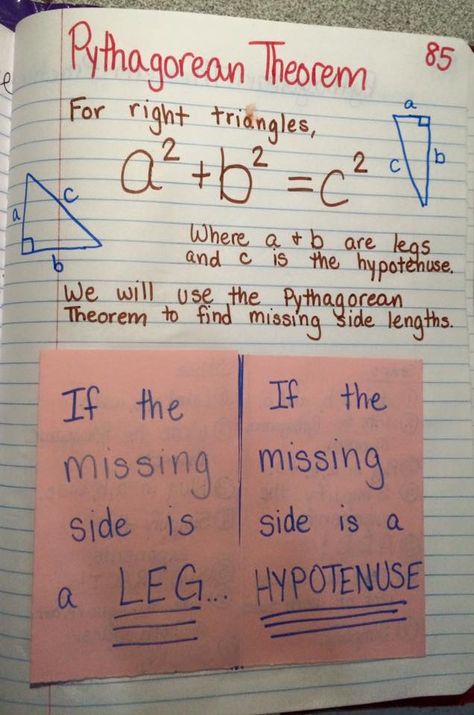 Pythagorean Theorem
85
For right triangles,
a² + b² = c²
a
c
b
a
c
b
Where a + b are legs
and c is the hypotenuse.
We will use the Pythagorean
Theorem to find missing side lengths.
If the
missing
side is
a LEG...
If the
missing
side is a
HYPOTENUSE
...